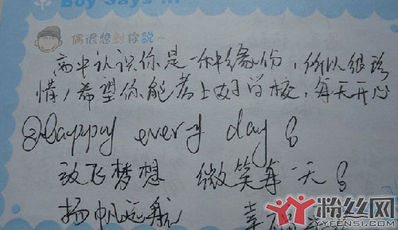 Boy Says ...
偶很想對你說~
高中认识你是一种缘份，所以很珍
惜！希望你能考上好学校，每天开心
@Happy every day 6
放飞梦想 微笑每一天6
扬帆远航 幸福
粉丝网
YYFENSI.COM